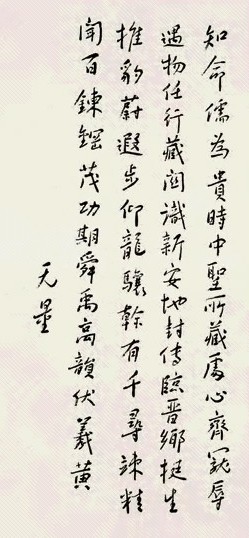 知命儒為貴時中聖所藏處心齊寵辱
遇物任行藏關識新安地封傳臨晉鄉挺生
推豹蔚遐步仰龍驤幹有千尋竦精
聞百鍊鋼茂功期舜禹高韻伏羲黃
无